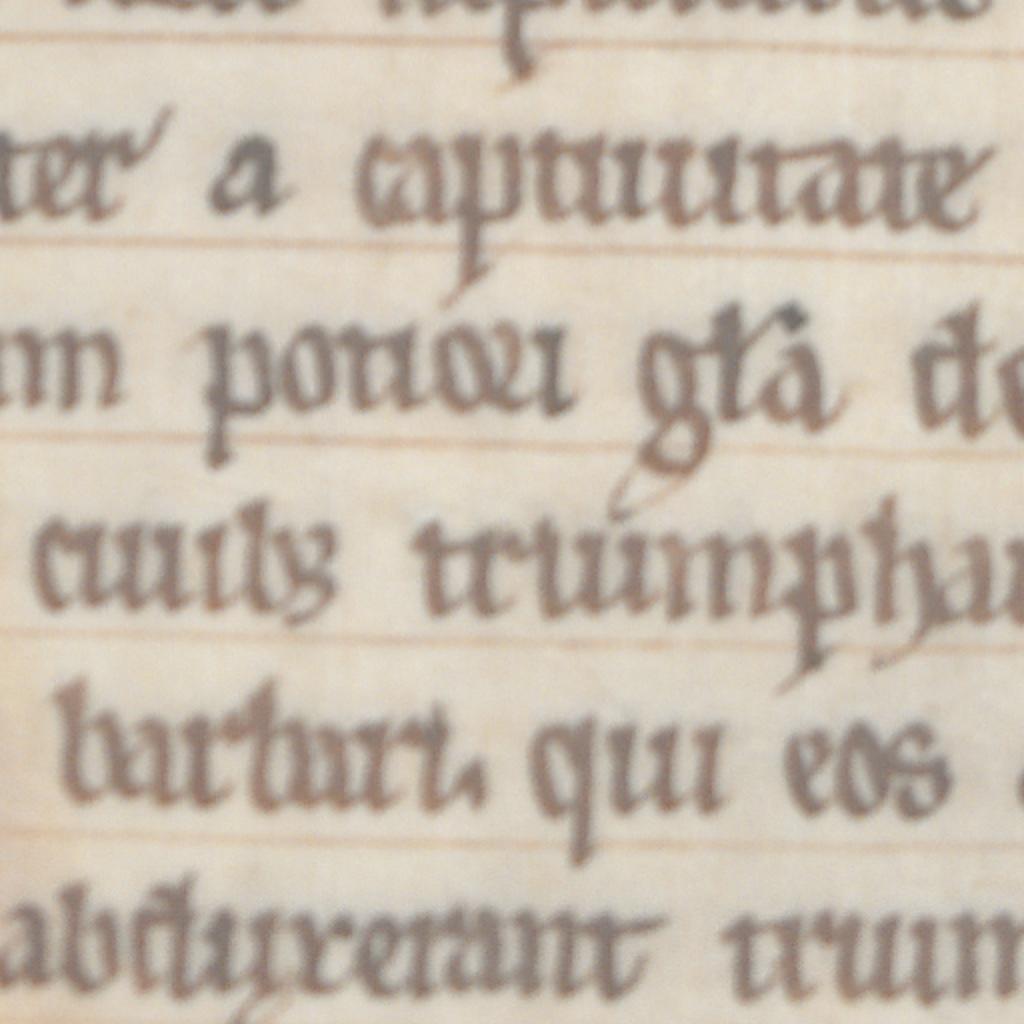 ter a captiuitate
m potiori gła de
ciuib; triumpha
barbari, qui eos
abduxerant trium